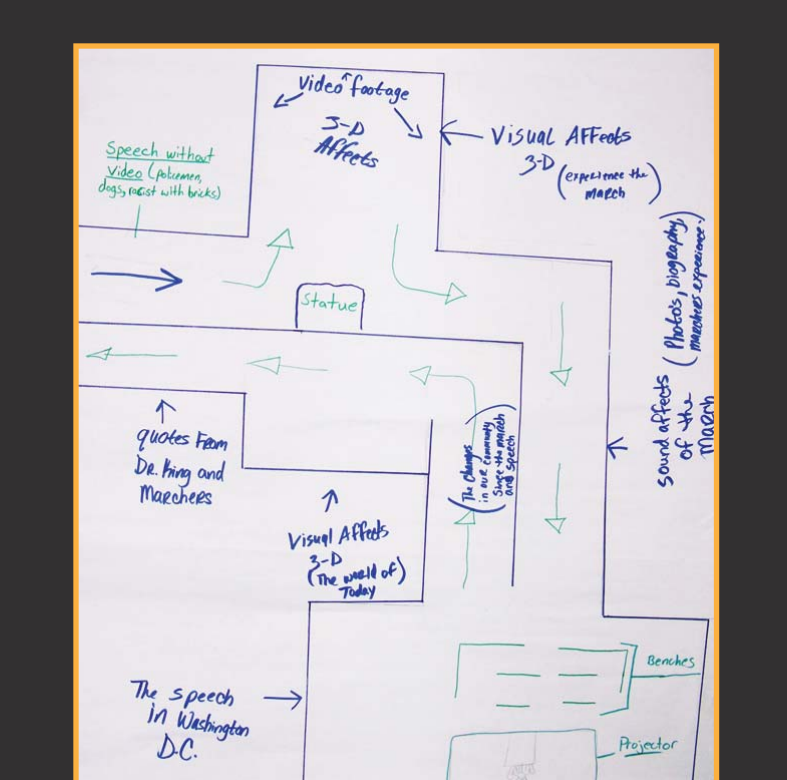 Video footage
3-D
Affects
Visual AFFects
3-D (experience the
march)
Speech without
Video (policemen,
dogs, racist with bricks)
Statue
sound affects
of the
March
(Photos, biography,
marchers experience.)
The changes
in our community
Since the march
and speech
quotes From
Dr. King and
Marchers
Visual Affects
3-D
(The world of)
Today
The speech
in Washington
D.C.
Benches
Projector